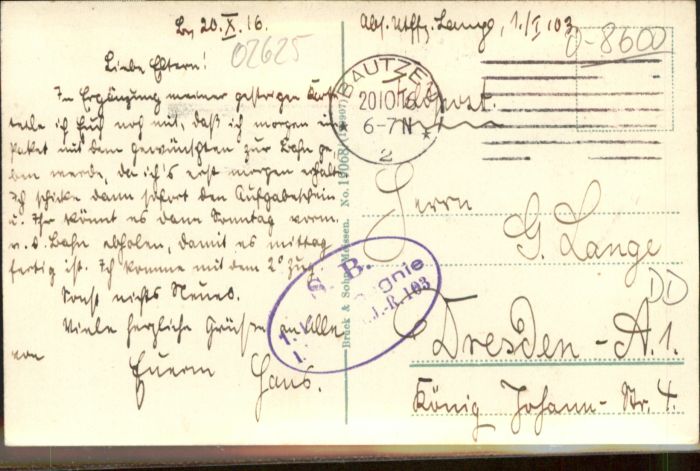 Bn 20.X.16.
02625
Liebe Eltern!
In Ergänzung meiner gestrigen Karte
teile ich Euch noch mit, daß ich morgen ein
Paket mit dem Gewünschten zur Bahn ge-
ben werde, da ich's erst morgen erhalte.
Ich schicke dann sofort den Aufgabeschein
u. Ihr könnt es dann Sonntag vorm.
v. d. Bahn abholen, damit es mittag
fertig ist. Ich komme mit dem 2. Zug.
Sonst nichts Neues.
Viele herzliche Grüße an Alle
von
Euerm
Hans.
Abs. Utffz. Lange, 1./I 103
0-8600
BAUTZEN
20 10 16
6-7 N
2
Feldpost.
Herrn
G. Lange
DD
Dresden-A. 1.
König Johann-Str. 4.
S. B.
J.-R. 103
Brück & Sohn, Meissen. No.